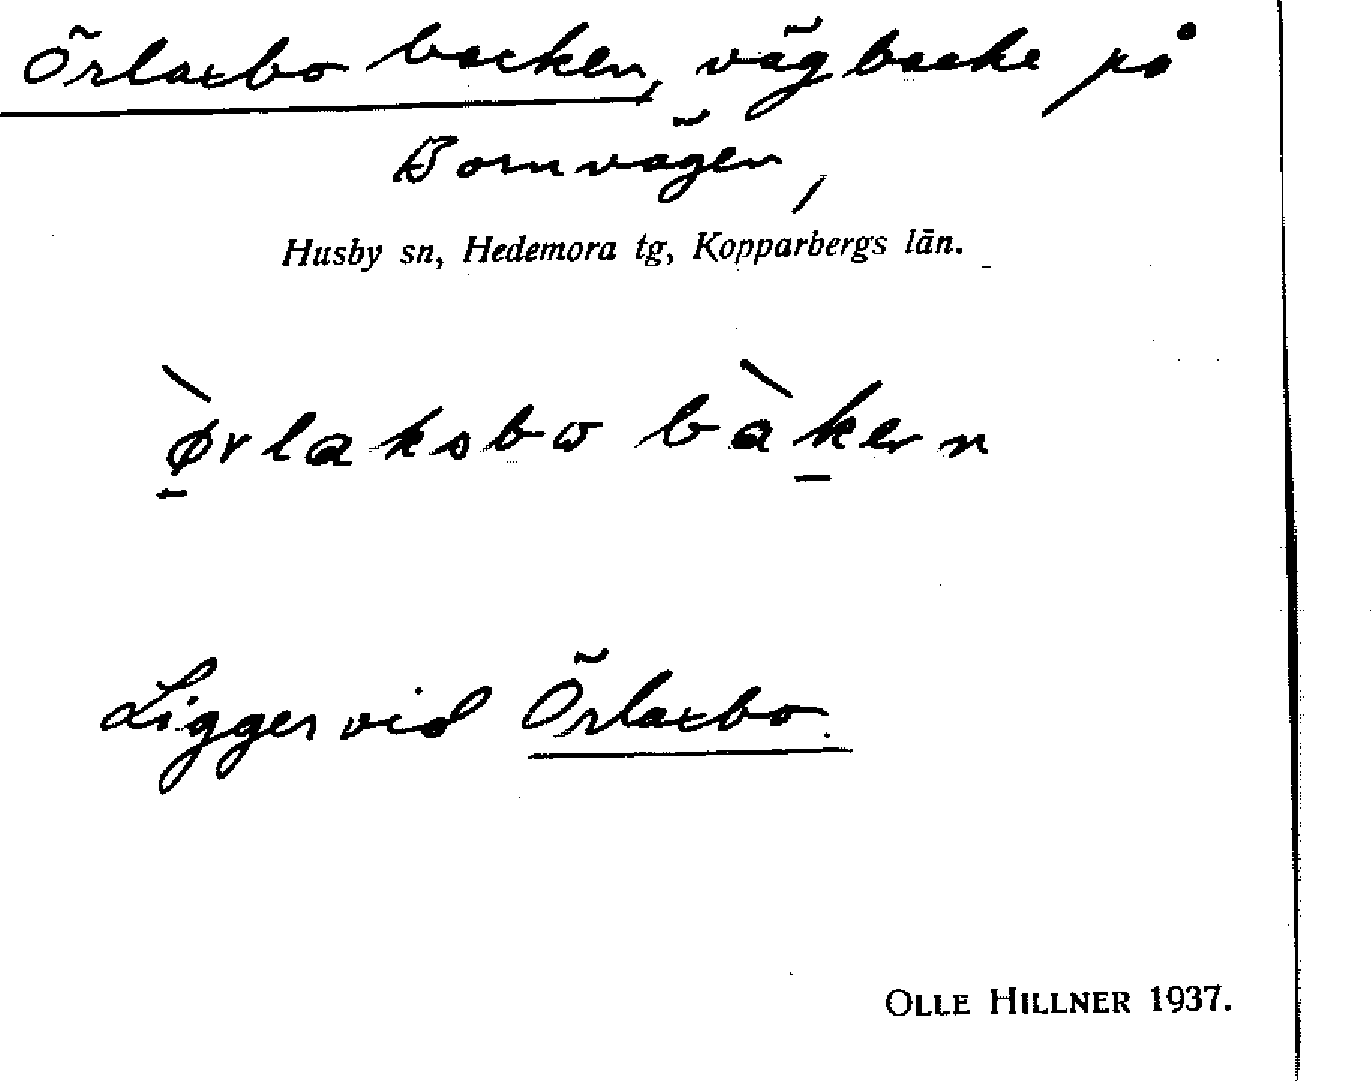 Örlaxbo backen, vägbacke på
Bornvägen,
Husby sn, Hedemora tg, Kopparbergs län.
ø̀rlaksbω bàkern
Ligger vid Örlaxbo.
OLLE HILLNER 1937.